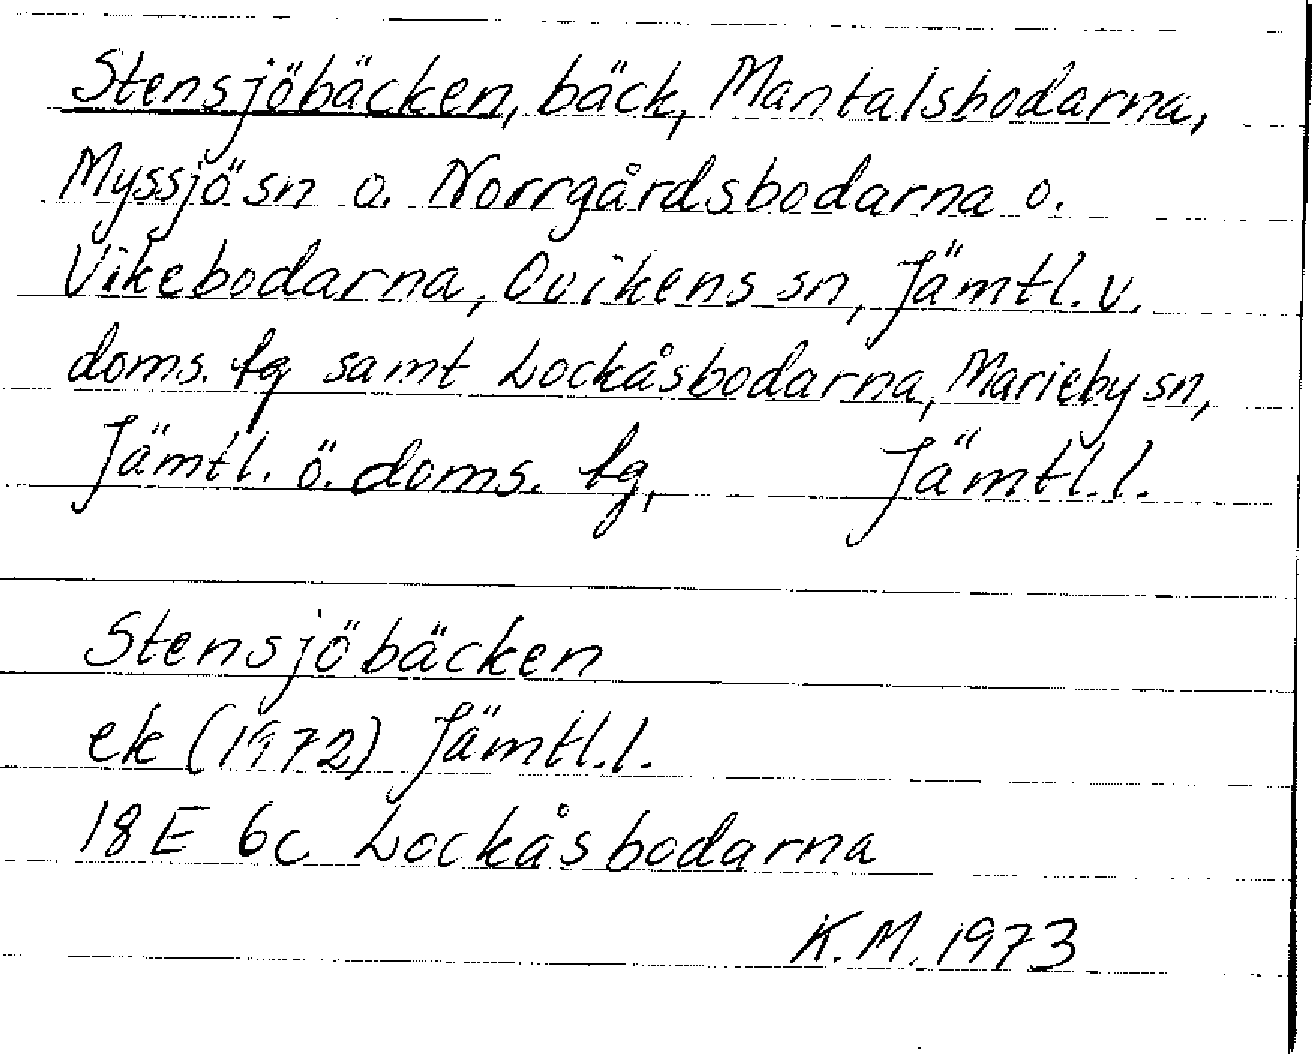 Stensjöbäcken, bäck, Mantalsbodarna,
Myssjö sn o. Norrgårdsbodarna o.
Vikebodarna, Ovikens sn, Jämtl. v.
doms. tg samt Lockåsbodarna, Marieby sn,
Jämtl. ö. doms. tg, Jämtl. l.
Stensjöbäcken
ek (1972) Jämtl. l.
18 E 6c Lockåsbodarna
K. M. 1973